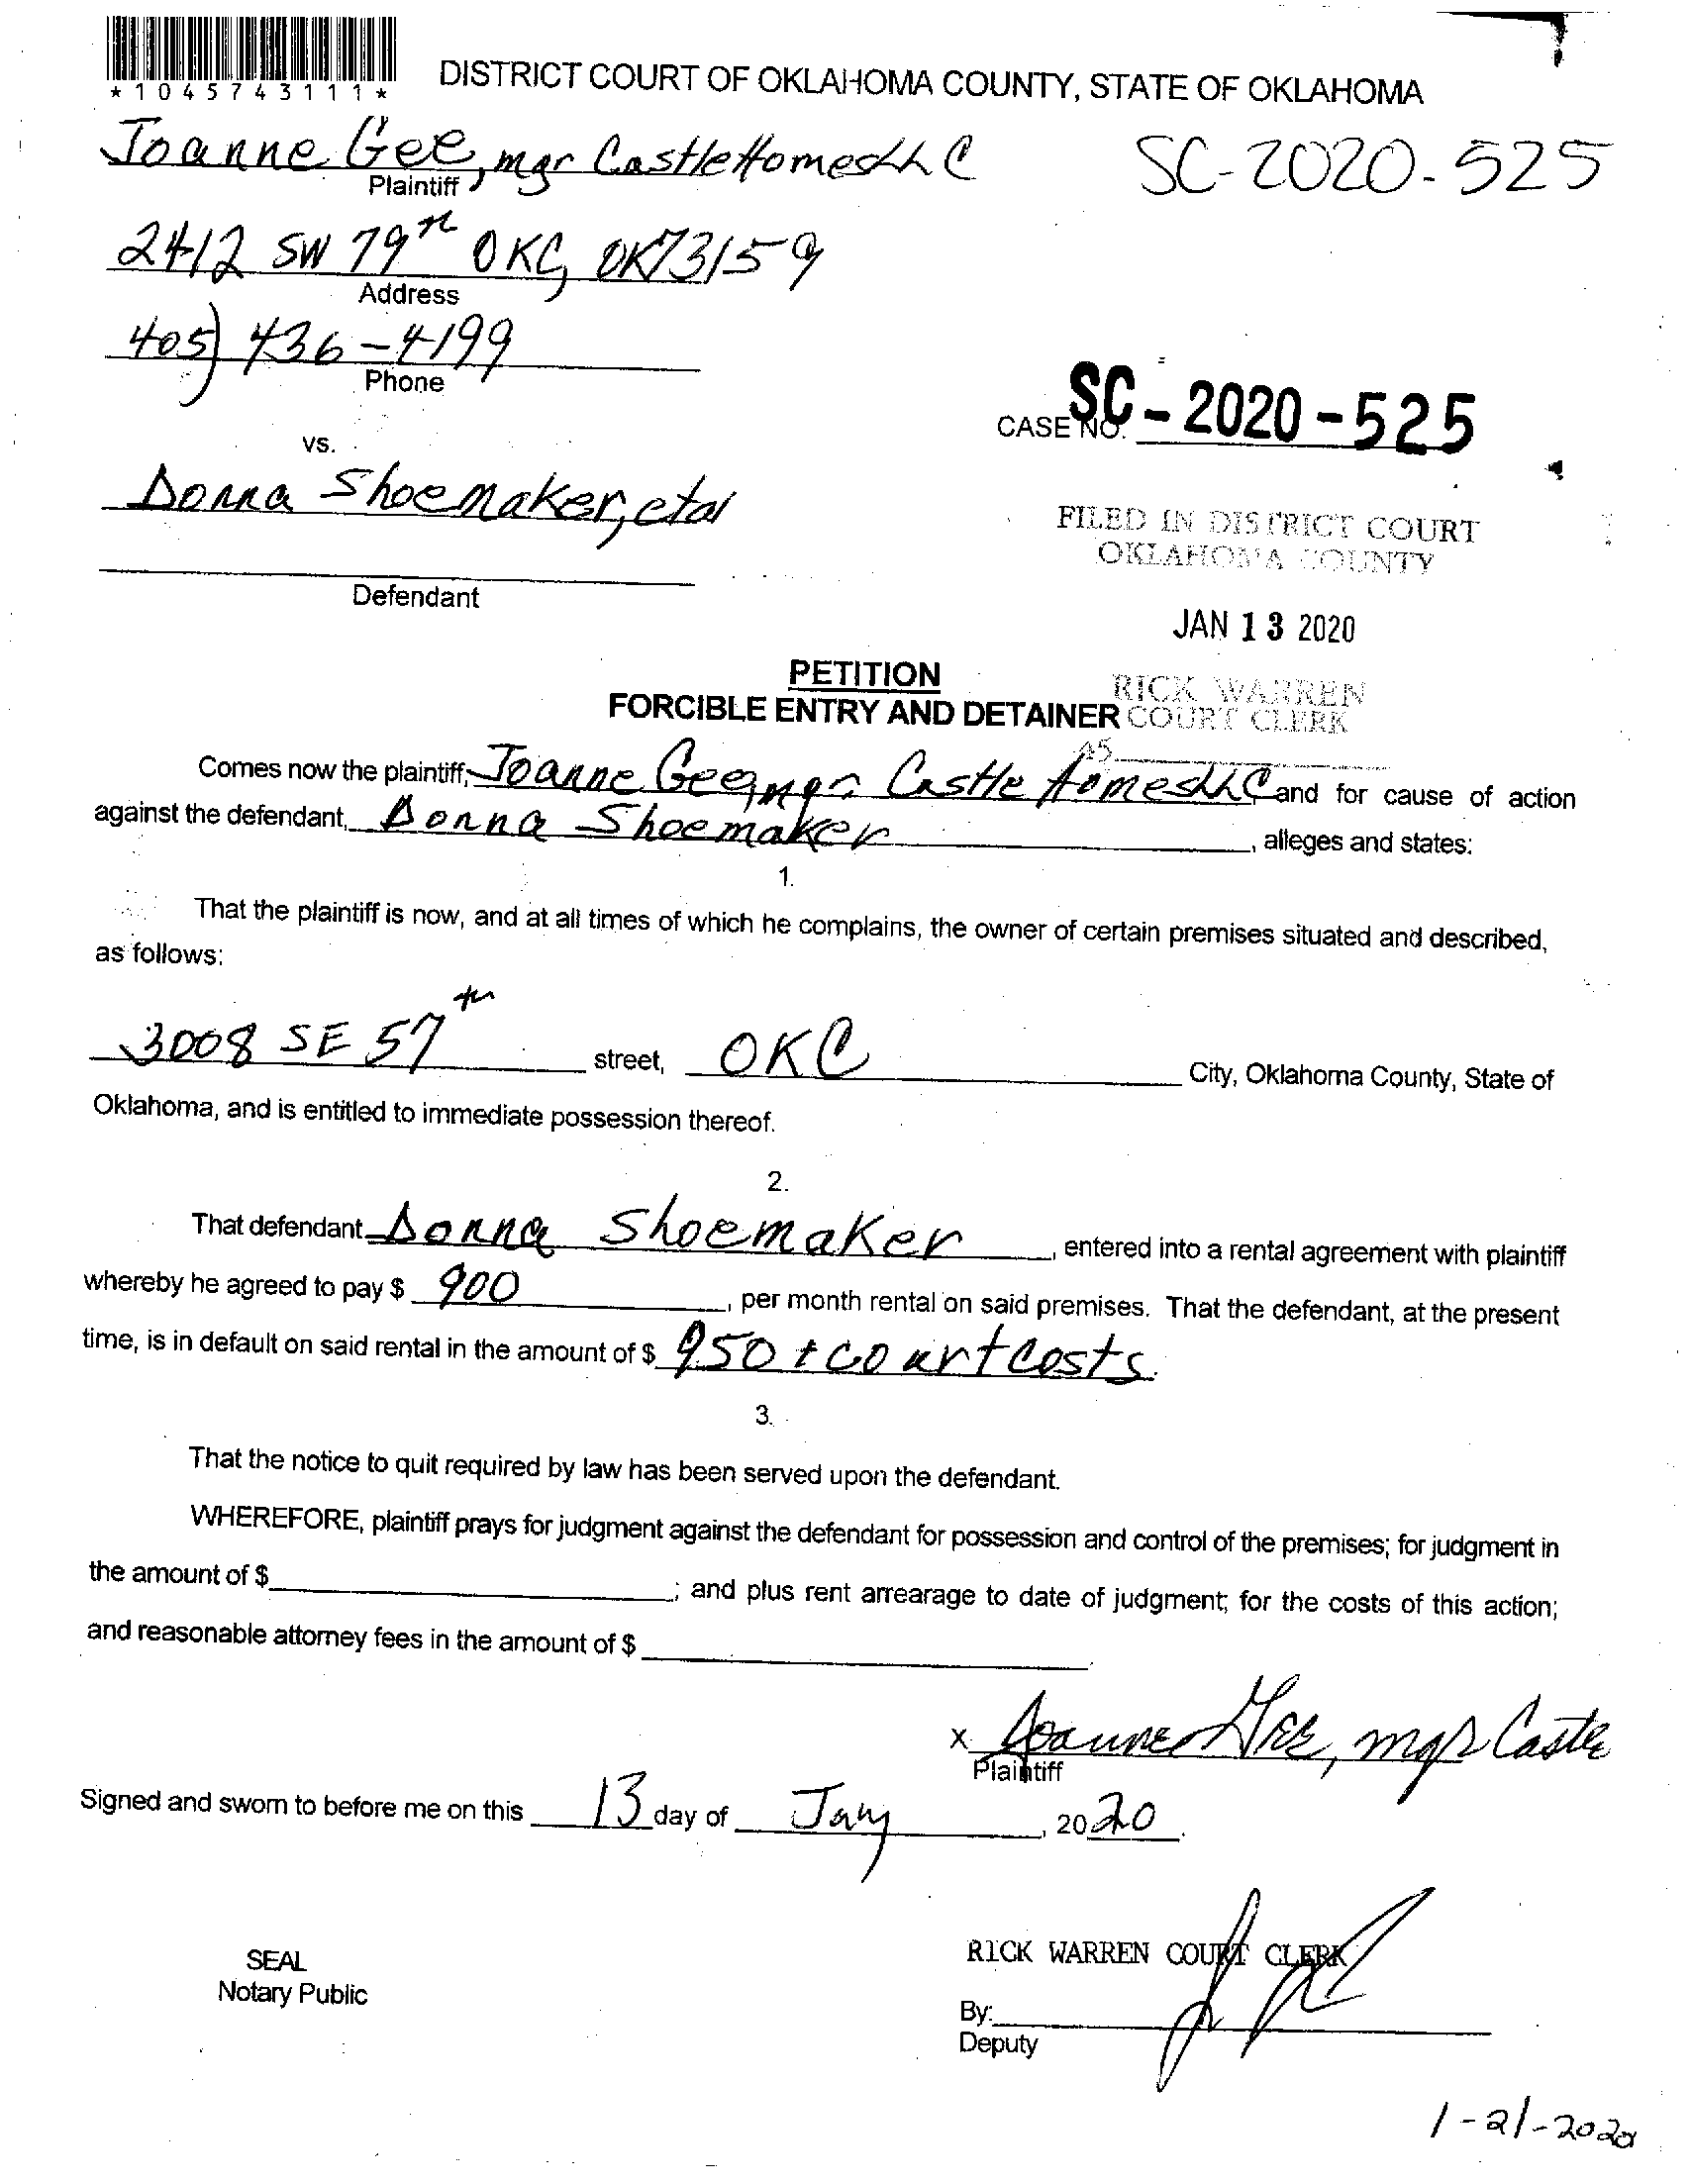 *1045743111*
DISTRICT COURT OF OKLAHOMA COUNTY, STATE OF OKLAHOMA
Joanne Gee, mgr Castle Homes LLC
SC-2020-525
Plaintiff
2412 SW 79th OKC, OK 73159
Address
405) 436-4199
Phone
CASE NO. SC-2020-525
vs.
Donna Shoemaker, etal
FILED IN DISTRICT COURT
OKLAHOMA COUNTY
Defendant
JAN 13 2020
PETITION
RICK WARREN
FORCIBLE ENTRY AND DETAINER
COURT CLERK
Comes now the plaintiff, Joanne Gee, mgr Castle Homes LLC and for cause of action
against the defendant, Donna Shoemaker, alleges and states:
1.
That the plaintiff is now, and at all times of which he complains, the owner of certain premises situated and described,
as follows:
3008 SE 57th street, OKC City, Oklahoma County, State of
Oklahoma, and is entitled to immediate possession thereof.
2.
That defendant Donna Shoemaker, entered into a rental agreement with plaintiff
whereby he agreed to pay $ 900, per month rental on said premises. That the defendant, at the present
time, is in default on said rental in the amount of $ 950 + court costs.
3.
That the notice to quit required by law has been served upon the defendant.
WHEREFORE, plaintiff prays for judgment against the defendant for possession and control of the premises; for judgment in
the amount of $ ; and plus rent arrearage to date of judgment; for the costs of this action;
and reasonable attorney fees in the amount of $ .
x Joanne Gee, mgr Castle
Plaintiff
Signed and sworn to before me on this 13 day of Jany, 2020.
SEAL
Notary Public
RICK WARREN COURT CLERK
By:
Deputy
1-21-2020